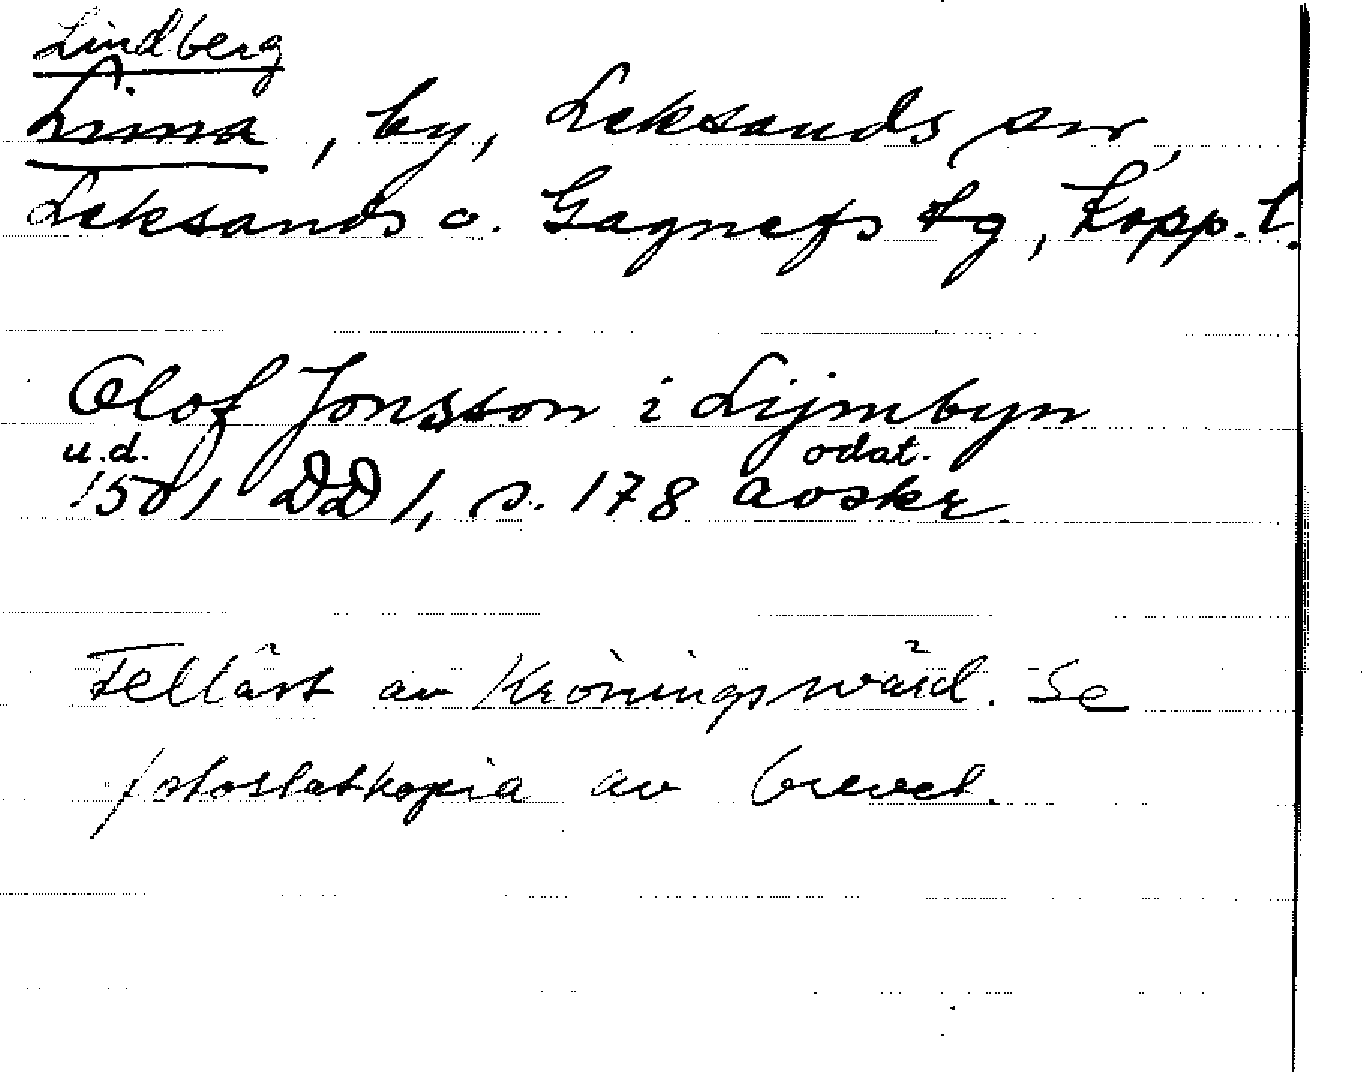 Lindberg
Lima, by, Leksands sn,
Leksands o. Gagnefs tg, Kopp. l.
Olof Jonsson i Lijmbyn
u.d. odat.
1501 DD 1, s. 178 avskr.
Felläst av Kröningswärd. Se
fotostatkopia av brevet.